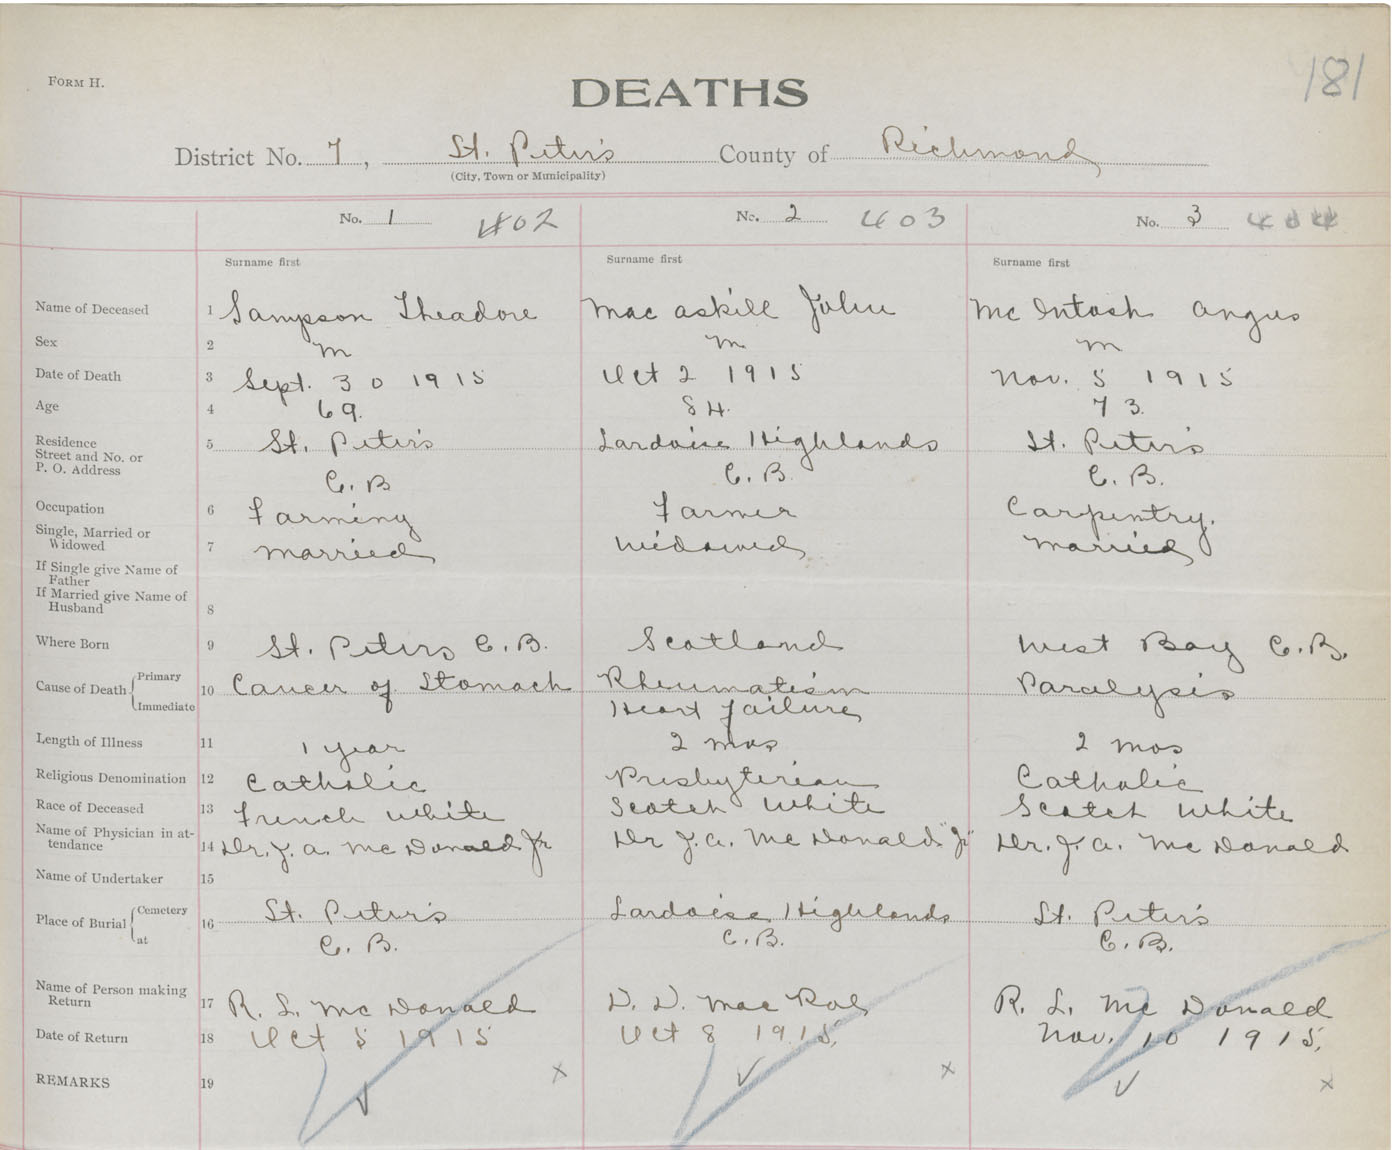 181
FORM H.
DEATHS
District No. 7, St. Peter's County of Richmond
(City, Town or Municipality)
No. 1 402 No. 2 403 No. 3 404
Surname first Surname first Surname first
Name of Deceased 1 Sampson Theadore Mac askill John Mc Intosh Angus
Sex 2 M M M
Date of Death 3 Sept. 30 1915 Oct 2 1915 Nov. 5 1915
Age 4 69. 84. 73.
Residence 5 St. Peter's Lardoise Highlands St. Peter's
Street and No. or
P. O. Address C. B C. B. C. B.
Occupation 6 Farming Farmer Carpentry.
Single, Married or
Widowed 7 married Widowed married
If Single give Name of
Father
If Married give Name of
Husband 8
Where Born 9 St. Peters C. B. Scotland West Bay C. B.
Cause of Death Primary 10 Cancer of Stomach Rheumatism Paralysis
Immediate Heart failure
Length of Illness 11 1 year 2 mos 2 mos
Religious Denomination 12 Catholic Presbyterian Catholic
Race of Deceased 13 French White Scotch White Scotch White
Name of Physician in at-
tendance 14 Dr. J. A. McDonald Jr Dr J. A. McDonald "Jr" Dr. J. A. McDonald
Name of Undertaker 15
Place of Burial Cemetery 16 St. Peter's Lardoise Highlands St. Peter's
at C. B. C. B. C. B.
Name of Person making
Return 17 R. L. McDonald D. D. Mac R. L. McDonald
Date of Return 18 Oct 5 1915 Oct 8 1915, Nov. 10 1915,
REMARKS 19 x x x